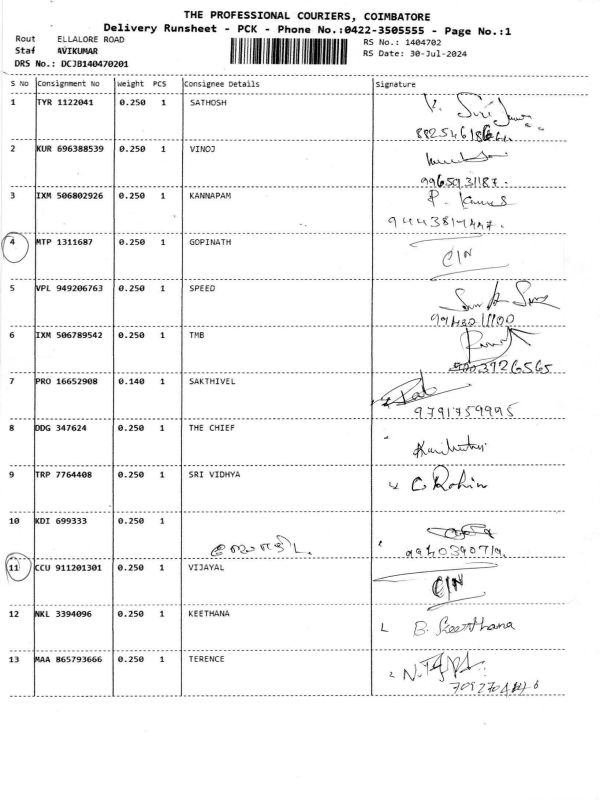 THE PROFESSIONAL COURIERS, COIMBATORE
Delivery Runsheet - PCK - Phone No.:0422-3505555 - Page No.:1
Rout ELLALORE ROAD RS No.: 1404702
Staf AVIKUMAR RS Date: 30-Jul-2024
DRS No.: DCJB140470201
S No Consignment No Weight PCS Consignee Details Signature
1 TYR 1122041 0.250 1 SATHOSH
2 KUR 696388539 0.250 1 VINOJ
9965931187.
3 IXM 506802926 0.250 1 KANNAPAM
4 MTP 1311687 0.250 1 GOPINATH C/N
5 VPL 949206763 0.250 1 SPEED
6 IXM 506789542 0.250 1 TMB
7 PRO 16652908 0.140 1 SAKTHIVEL
9791759995
8 DDG 347624 0.250 1 THE CHIEF
9 TRP 7764408 0.250 1 SRI VIDHYA C. Rohin
10 KDI 699333 0.250 1
9940390719.
11 CCU 911201301 0.250 1 VIJAYAL C/N
12 NKL 3394096 0.250 1 KEETHANA B. Keerthana
13 MAA 865793666 0.250 1 TERENCE